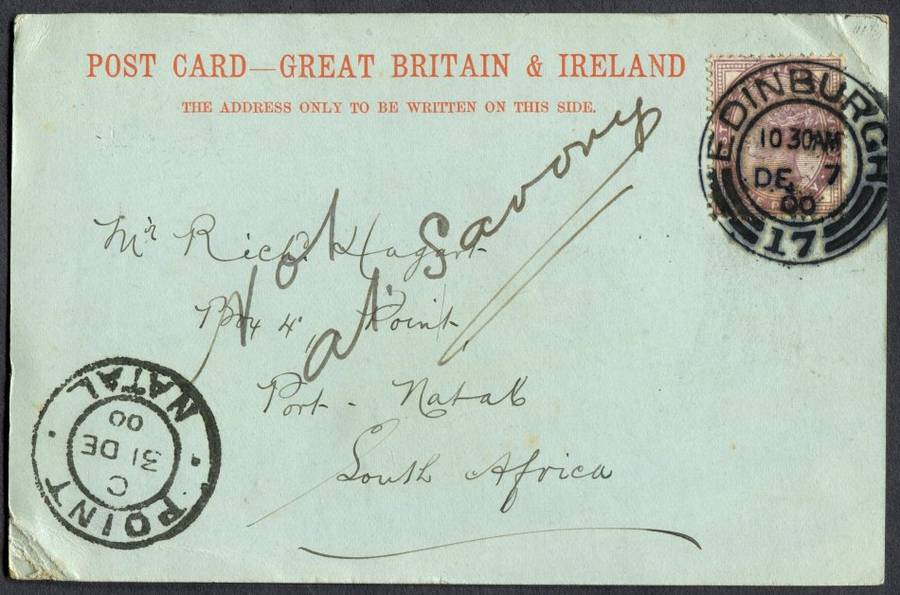 POST CARD—GREAT BRITAIN & IRELAND
THE ADDRESS ONLY TO BE WRITTEN ON THIS SIDE.
EDINBURGH
10 30AM
DE 7
00
17
Not
at Savory
Mr Richd. Hagart
Box 4, Point
Port - Natal
South Africa
POINT NATAL
C
31 DE
00